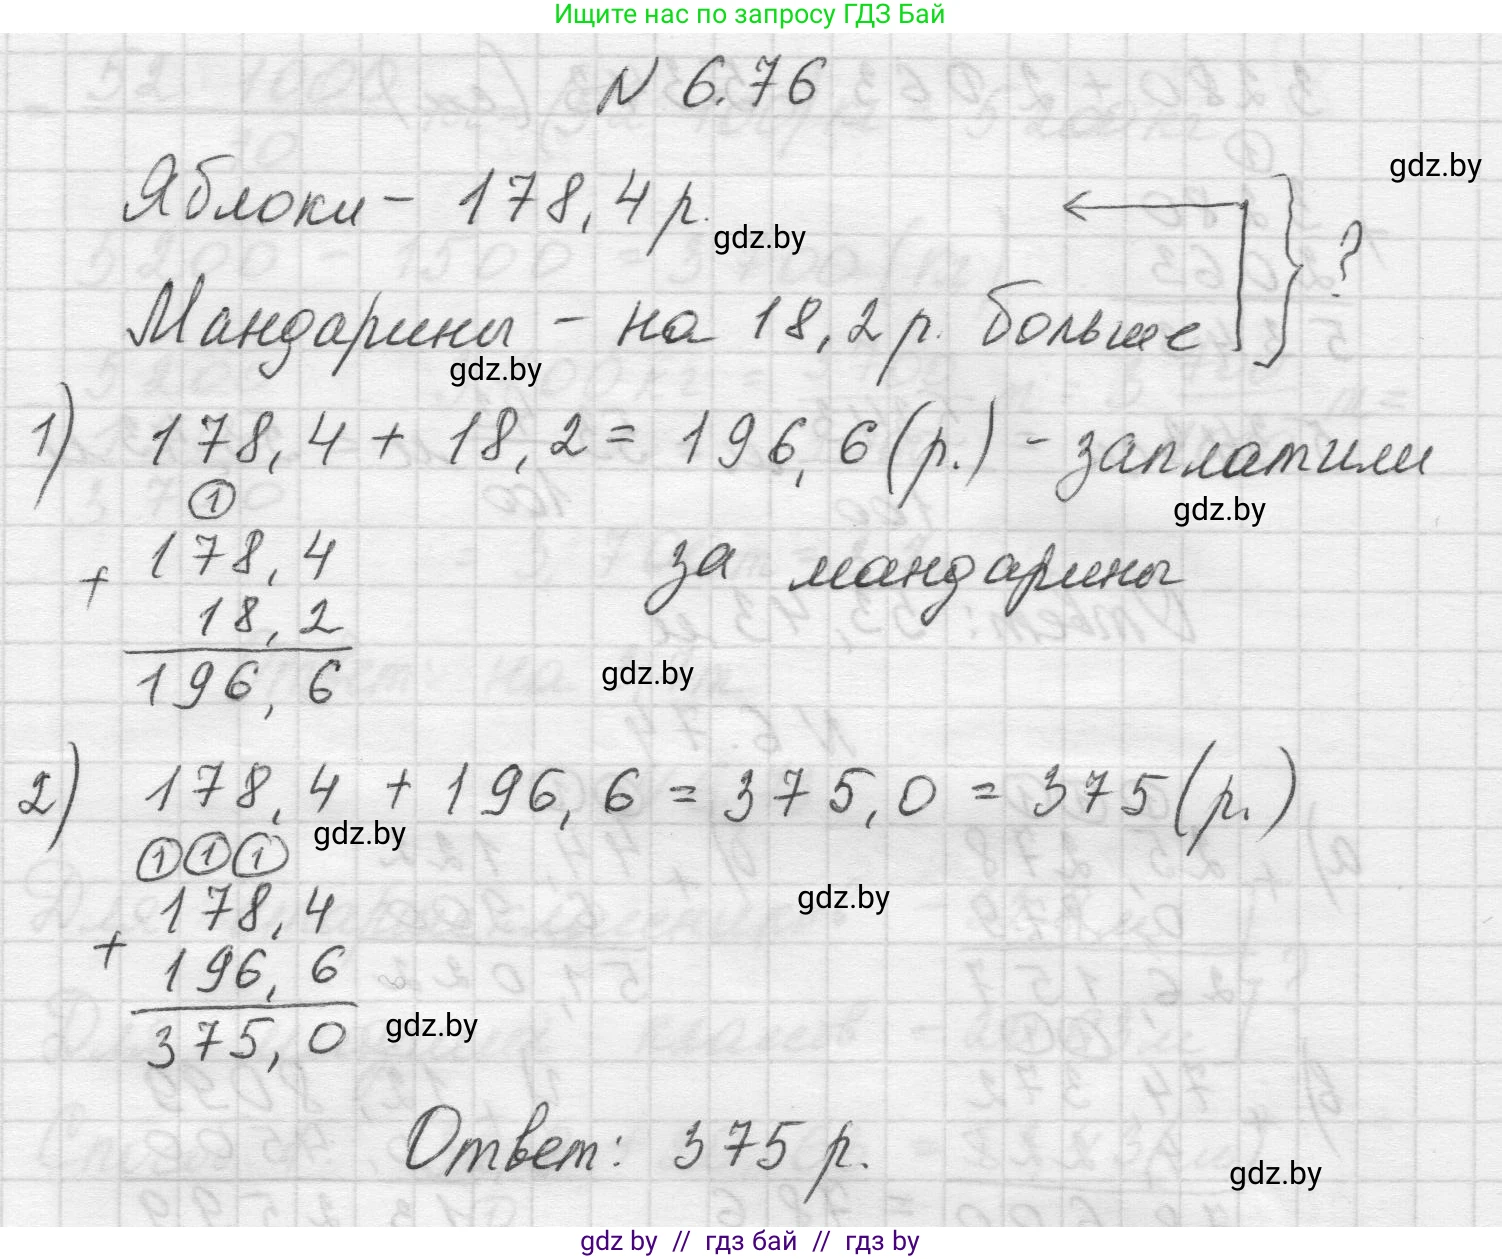 Ищите нас по запросу ГДЗ Бай
N 6.76
gdz.by
Яблоки – 178,4 р.
gdz.by
?
Мандарины – на 18,2 р. больше
gdz.by
1) 178,4 + 18,2 = 196,6 (р.) – заплатили
gdz.by
за мандарины
1
178,4
+
18,2
196,6
gdz.by
2) 178,4 + 196,6 = 375,0 = 375 (р.)
gdz.by
1 1 1
178,4
+
196,6
375,0
gdz.by
gdz.by
Ответ: 375 р.
gdz.by
gdz.by // гдз бай // гдз by